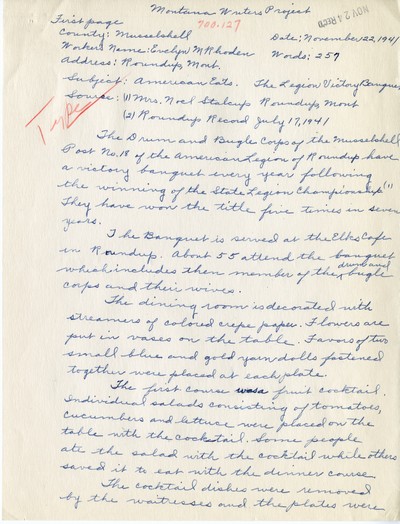 Montana Writers Project
NOV 24 REC'D
First page
700.127
County: Musselshell
Date: November 22, 1941
Workers Name: Evelyn M Rhoden
Words: 257
Address: Roundup Mont.
Subject: American Eats. The Legion Victory Banquet
Source: (1) Mrs. Noel Stalcup Roundup Mont
(2) Roundup Record July 17, 1941
Type
The Drum and Bugle Corps of the Musselshell
Post No. 18 of the American Legion of Roundup have
a victory banquet every year following
the winning of the State Legion Championship. (1)
They have won the title five times in seven
years.
The Banquet is served at the Elks Cafe
in Roundup. About 55 attend the banquet
which includes then member of the drum and bugle
corps and their wives.
The dining room is decorated with
streamers of colored crepe paper. Flowers are
put in vases on the table. Favors of two
small blue and gold yarn dolls fastened
together were placed at each plate.
The first course was a fruit cocktail.
Individual salads consisting of tomatoes,
cucumbers and lettuce were placed on the
table with the cocktail. Some people
ate the salad with the cocktail while others
saved it to eat with the dinner course
The cocktail dishes were removed
by the waitresses and the plates were